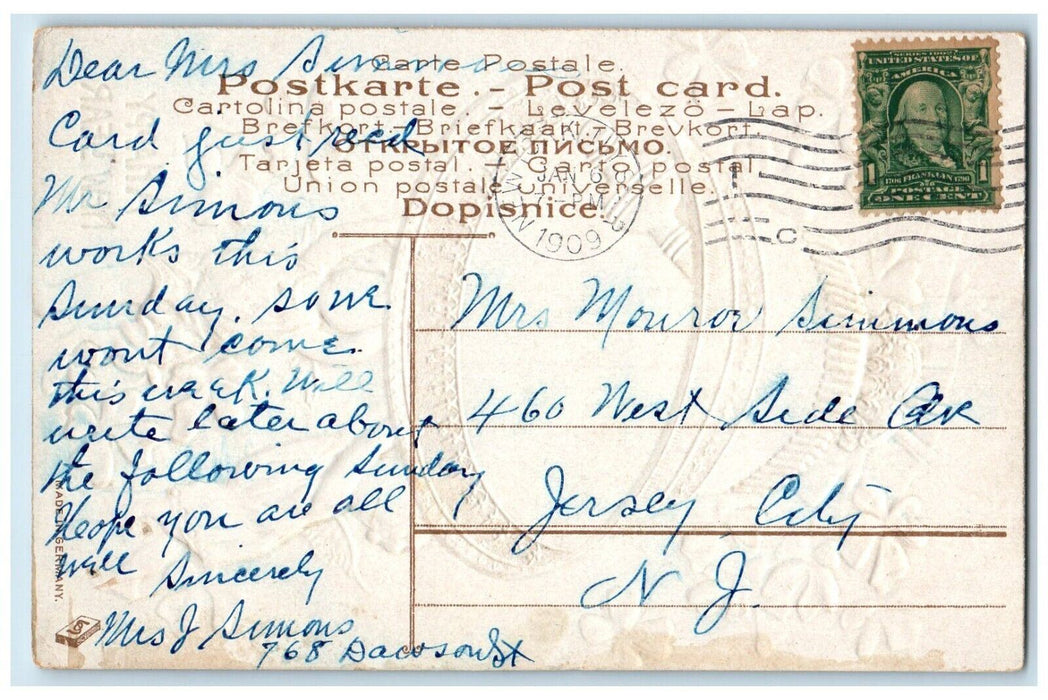 Dear Mrs Simmons
Carte Postale.
Postkarte.- Post card.
Cartolina postale. - Levelezö-Lap.
Brefkort-Briefkaart.-Brevkort.
Card just recd
ОТКРЫТОЕ ПИСЬМО.
Tarjeta postal. - Carto postal
Union postale universelle.
Dopisnice.
Mr Simons
works this
Sunday. so we
wont come
this week. Will
write later about
the following Sunday
Hope you are all
well
Sincerely
Mrs J Simons
768 Dawson St
SERIES 1902
UNITED STATES OF
AMERICA
1706 FRANKLIN 1790
1 POSTAGE 1
ONE CENT
NEW YORK
JAN 6
PM
1909
C
Mrs Monroe Simmons
460 West Side Ave
Jersey City
N J.
MADE IN GERMANY.